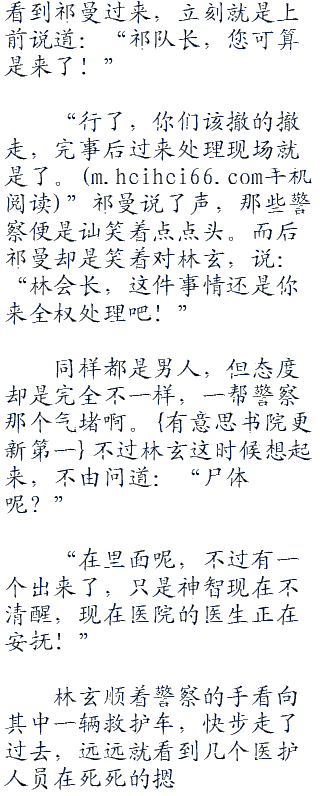 看到祁曼过来，立刻就是上
前说道：“祁队长，您可算
是来了！”
“行了，你们该撤的撤
走，完事后过来处理现场就
是了。(m.hcihci66.com手机
阅读)”祁曼说了声，那些警
察便是讪笑着点点头。而后
祁曼却是笑着对林玄，说：
“林会长，这件事情还是你
来全权处理吧！”
同样都是男人，但态度
却是完全不一样，一帮警察
那个气堵啊。{有意思书院更
新第一}不过林玄这时候想起
来，不由问道：“尸体
呢？”
“在里面呢，不过有一
个出来了，只是神智现在不
清醒，现在医院的医生正在
安抚！”
林玄顺着警察的手看向
其中一辆救护车，快步走了
过去，远远就看到几个医护
人员在死死的摁